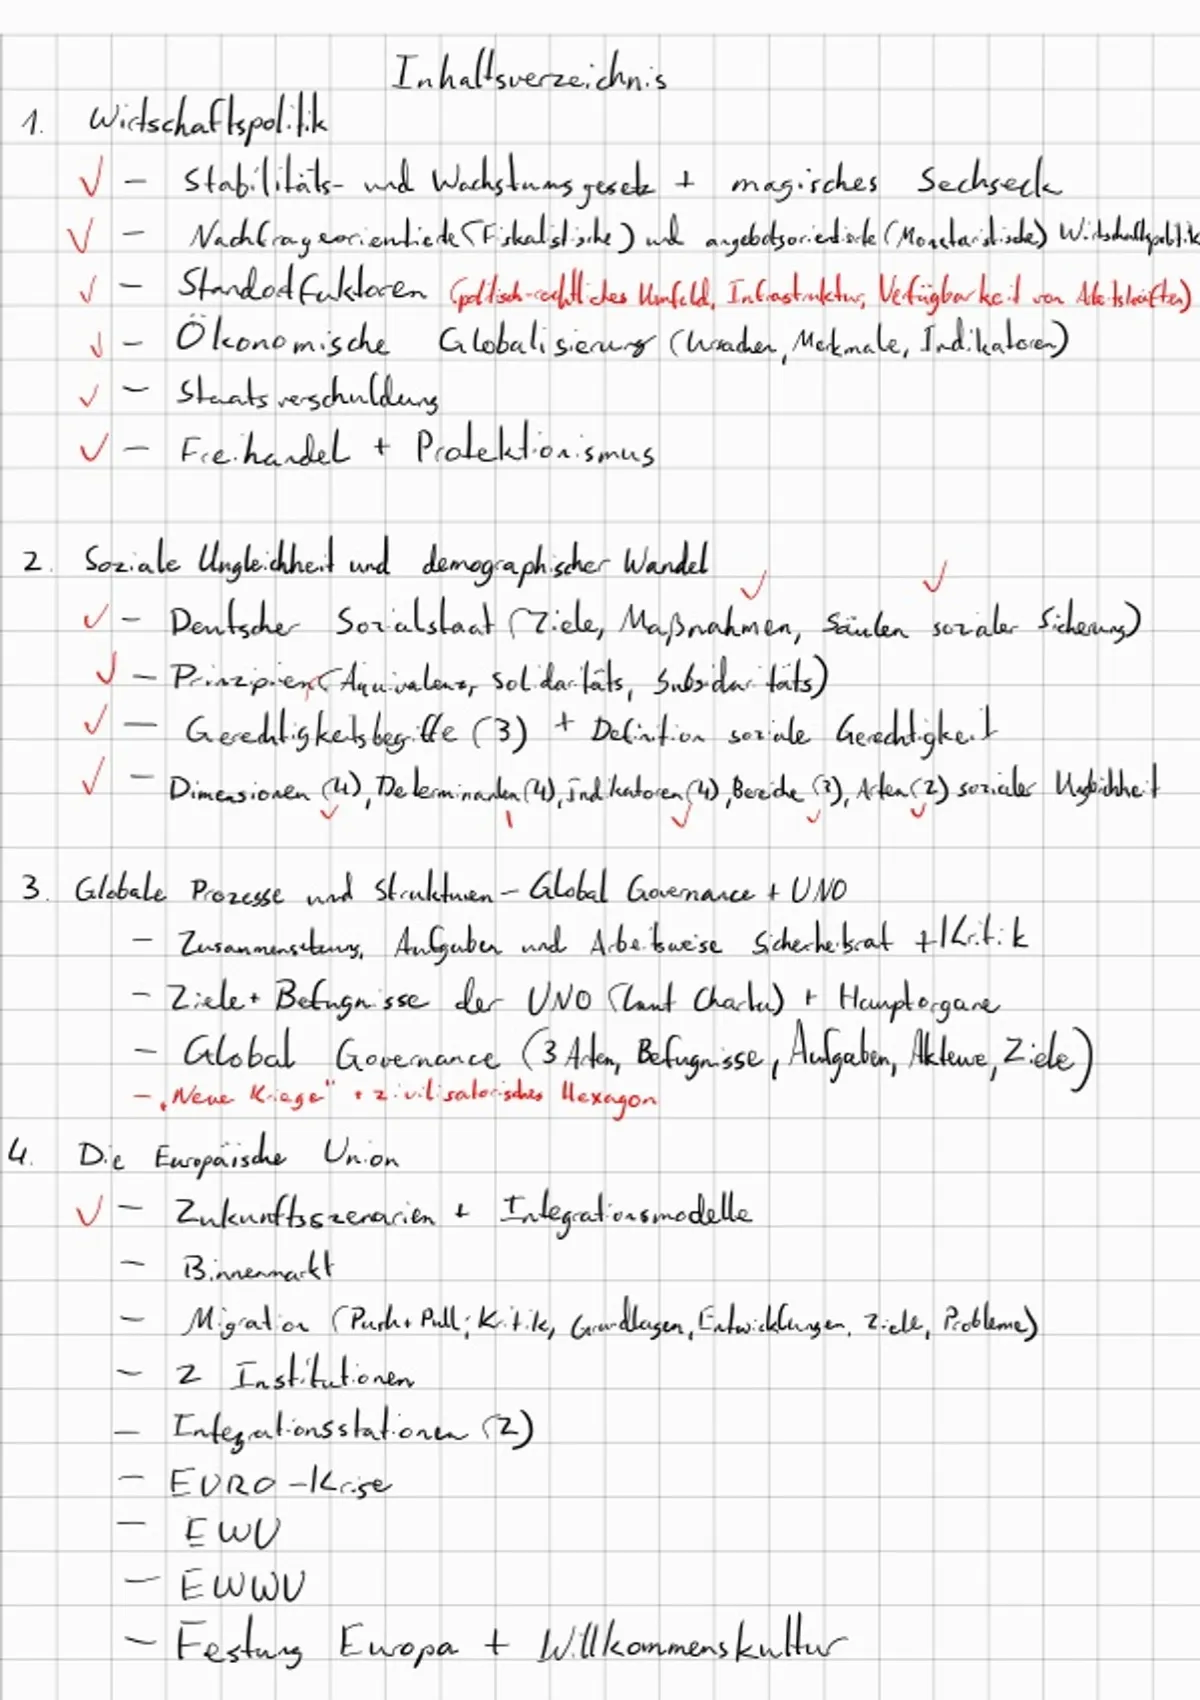 Inhaltsverzeichnis
1. Wirtschaftspolitik
✓ - Stabilitäts- und Wachstumsgesetz + magisches Sechseck
✓ - Nachfrageorientierte (Fiskalistische) und angebotsorientierte (Monetaristische) Wirtschaftspolitik
✓ - Standortfaktoren (politisch-rechtliches Umfeld, Infrastruktur, Verfügbarkeit von Arbeitskräften)
✓ - Ökonomische Globalisierung (Ursachen, Merkmale, Indikatoren)
✓ - Staatsverschuldung
✓ - Freihandel + Protektionismus
2. Soziale Ungleichheit und demographischer Wandel
✓ - Deutscher Sozialstaat (Ziele, Maßnahmen, Säulen sozialer Sicherung)
✓ - Prinzipien (Äquivalenz, Solidaritäts, Subsidaritäts)
✓ - Gerechtigkeitsbegriffe (3) + Definition soziale Gerechtigkeit
✓ - Dimensionen (4), Determinanten (4), Indikatoren (4), Bereiche (3), Arten (2) sozialer Ungleichheit
3. Globale Prozesse und Strukturen - Global Governance + UNO
- Zusammensetzung, Aufgaben und Arbeitsweise Sicherheitsrat + Kritik
- Ziele + Befugnisse der UNO (laut Charta) + Hauptorgane
- Global Governance (3 Arten, Befugnisse, Aufgaben, Akteure, Ziele)
- „Neue Kriege" + zivilisatorisches Hexagon
4. Die Europäische Union
✓ - Zukunftsszenarien + Integrationsmodelle
- Binnenmarkt
- Migration (Push + Pull; Kritik, Grundlagen, Entwicklungen, Ziele, Probleme)
- 2 Institutionen
- Integrationsstationen (2)
- EURO-Krise
- EWU
- EWWU
- Festung Europa + Willkommenskultur